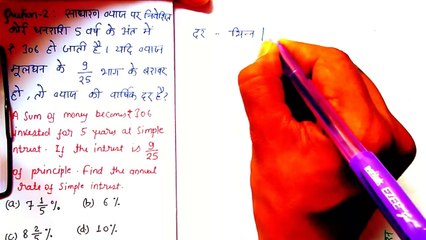 Question-2: साधारण ब्याज पर निवेशित
कोई धनराशि 5 वर्ष के अंत में
₹ 306 हो जाती है। यदि ब्याज
मूलधन के 9/25 भाग के बराबर
हो, तो ब्याज की वार्षिक दर है?
A sum of money becomes ₹ 306
invested for 5 years at simple
intrest. If the intrest is 9/25
of principle. Find the annual
rate of simple intrest.
(a) 7 1/5 % (b) 6%
(c) 8 2/5 % (d) 10%
दर - भिन्न